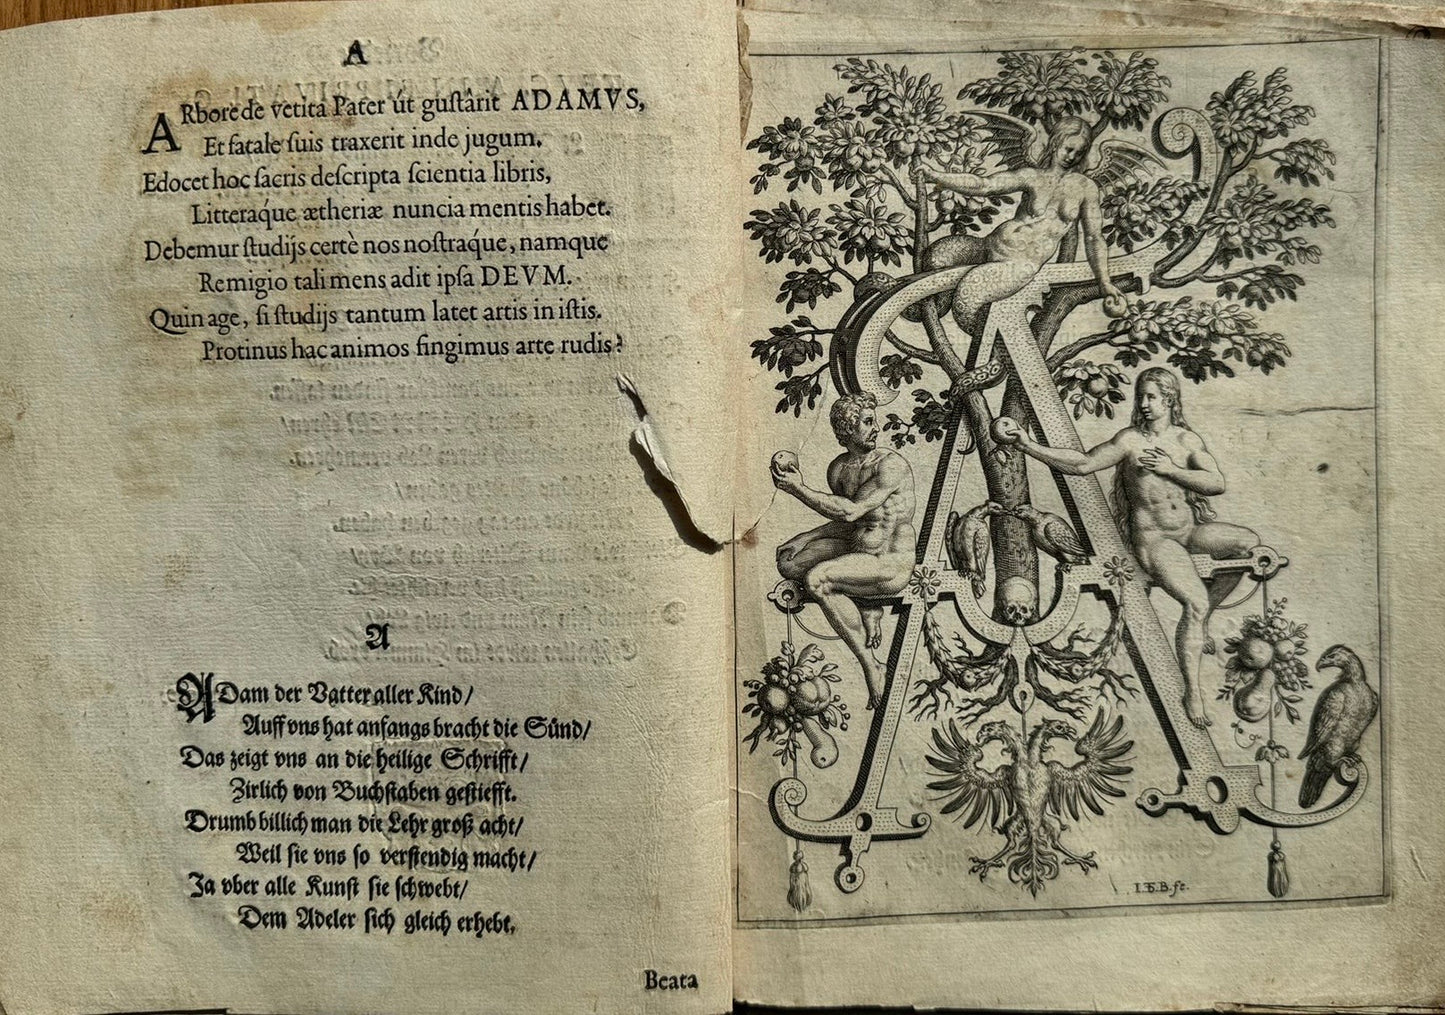 A
ARbore de vetita Pater út guſtârit ADAMVS,
Et fatale ſuis traxerit inde jugum.
Edocet hoc ſacris deſcripta ſcientia libris,
Litteraq́ue ætheriæ nuncia mentis habet.
Debemur ſtudijs certè nos noſtraq́ue, namque
Remigio tali mens adit ipſa DEVM.
Quin age, ſi ſtudijs tantum latet artis in iſtis.
Protinus hac animos fingimus arte rudis?
A
ADam der Vatter aller Kind/
Auff vns hat anfangs bracht die Sünd/
Das zeigt vns an die heilige Schrifft/
Zirlich von Buchſtaben geſtiefft.
Drumb billich man die Lehr groß acht/
Weil ſie vns ſo verſtendig macht/
Ja vber alle Kunſt ſie ſchwebt/
Dem Adeler ſich gleich erhebt.
Beata
I.T.B. fe.